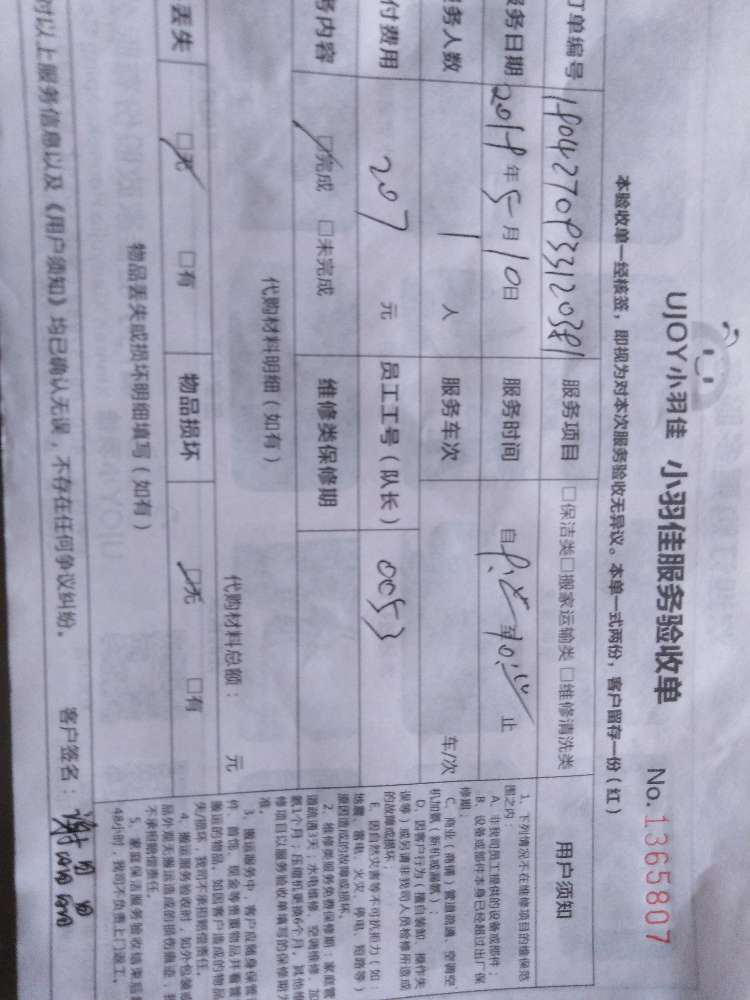 UJOY小羽佳 小羽佳服务验收单 No.1365807
本验收单一经核签，即视为对本次服务验收无异议。本单一式两份，客户留存一份（红）
订单编号 服务项目 □保洁类□搬家运输类□维修清洗类
服务日期 年5月10日 服务时间 自 至 止
服务人数 1 人 服务车次 车/次
付费用 207 元 员工工号（队长） 0053
务内容 □完成 □未完成 维修类保修期
代购材料明细（如有）
代购材料总额： 元
丢失 □无 □有 物品损坏 □无 □有
物品丢失或损坏明细填写（如有）
对以上服务信息以及《用户须知》均已确认无误，不存在任何争议纠纷。 客户签名：
用户须知
1、下列情况不在维修项目的维保范
围之内：
A、非我司员工提供的设备或部件；
B、设备或部件本身已经超过出厂保
修期；
C、商业（商铺）管道疏通、空调空
机加氨（新机或漏氨）；
D、因客户行为（擅自装卸、操作失
误等）或另请非我司人员检修所造成
的故障或损坏；
E、因自然灾害等不可抗拒力（如：
地震、雷电、火灾、停电、短路等）
原因造成的故障或损坏。
2、维修类服务免费保修期：家庭管
道疏通3天；水电维修、空调维修、加
氨1个月；压缩机更换6个月，其他维
修项目以服务验收单填写的保修期为
准。
3、搬运服务中，客户应随身保管
件、首饰、现金等贵重物品并看管
搬运的物品，如因客户造成的物品
失/损坏，我司不承担赔偿责任。
4、搬运服务验收时，如外包装或
品外观无搬运造成的损伤痕迹，我
不承担赔偿责任。
5、家庭保洁服务验收结束后超
48小时，我司不负责上门返工。